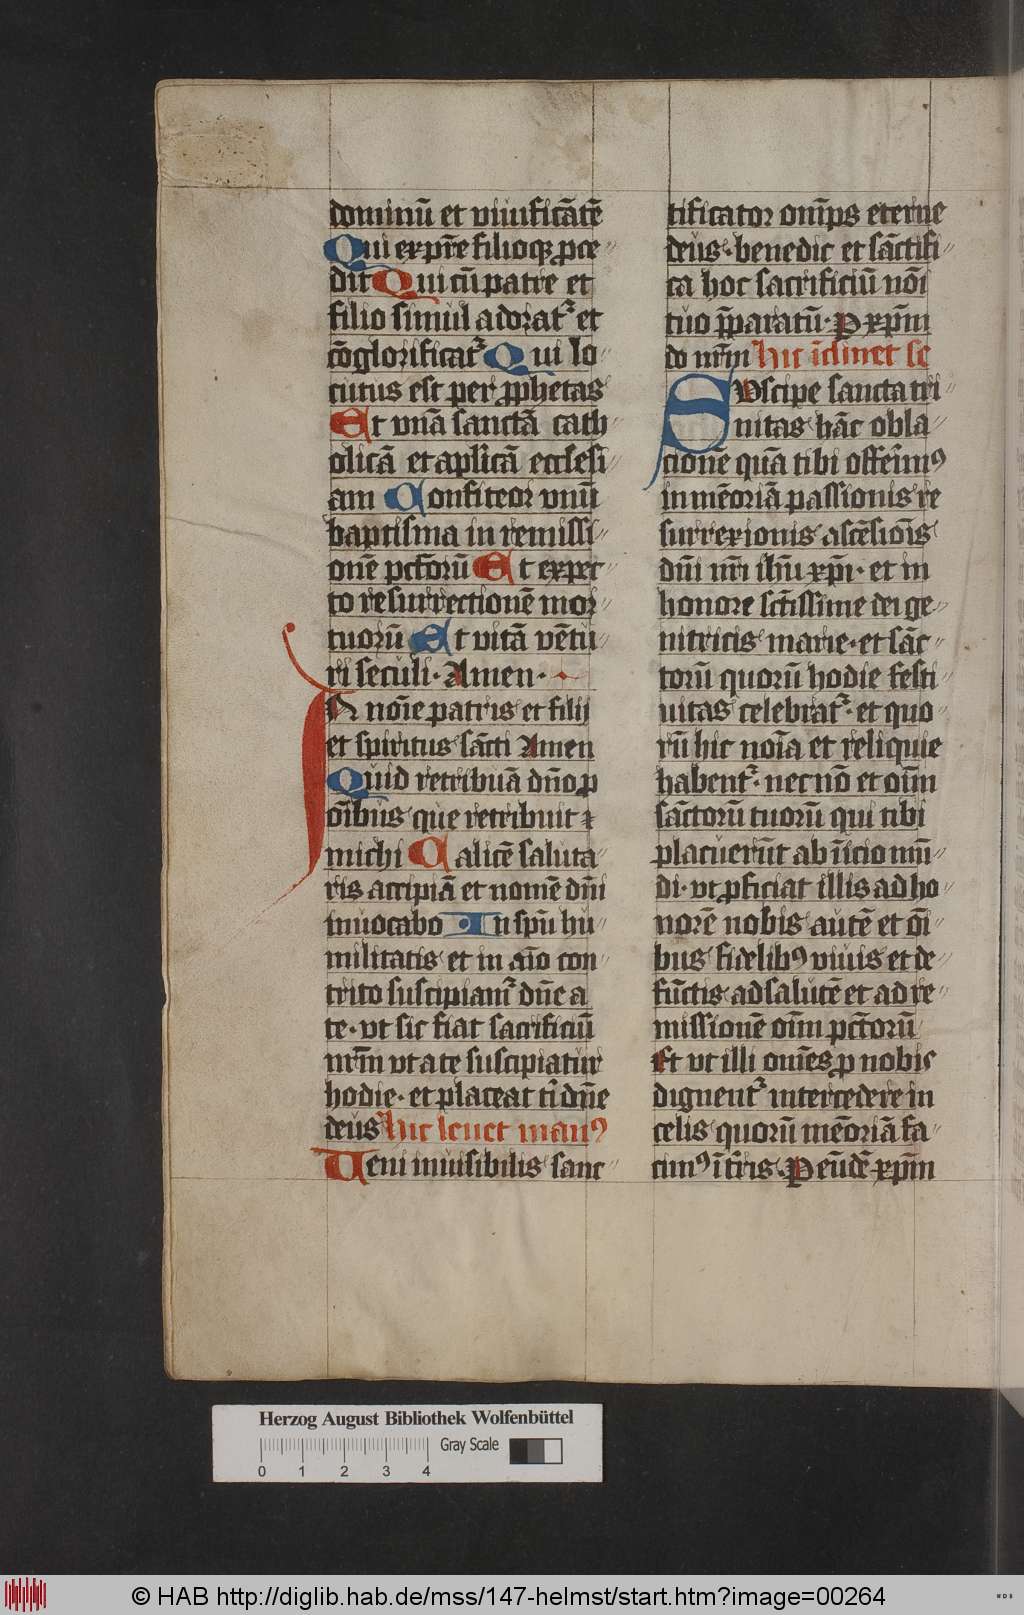 dominū et viuificātē
Qui ex pr̄e filioq; ꝓce
dit Qui cū patre et
filio simul adoratᷣ et
cōglorificatᷣ Qui lo
cutus est per ꝓphetas
Et vnā sanctā cath
olicā et aplicā ecclesi
am Confiteor vnū
baptisma in remissi
onē pctōrū Et expec
to resurrectionē mor
tuorū Et vitā vētu
ri seculi· Amen·
In noīe patris et filij
et spiritus sācti Amen
Quid retribuā dn̄o ꝓ
oībus que retribuit
michi Calicē saluta
ris accipiā et nomē dn̄i
inuocabo In spū hu
militatis et in aīo con
trito suscipiamᷣ dn̄e a
te· vt sic fiat sacrificiū
nr̄m vt a te suscipiatur
hodie· et placeat tī dn̄e
deus hic leuet manꝰ
Ueni inuisibilis sanc
tificator onīps eterne
deus· benedic et sāctifi
ca hoc sacrificiū nōi
tuo p̄paratū· P xp̄m
do nr̄m hic īclinet se
Suscipe sancta tri
nitas hāc obla
cionē quā tibi offerimꝰ
in mēoriā passionis re
surrexionis ascēsiōis
dn̄i nr̄i ih̄u xp̄i· et in
honore sctīssime dei ge
nitricis marie· et sāc
torū quorū hodie festi
uitas celebratᷣ· et quo
rū hic noīa et reliquie
habentᷣ· nec nō et oīm
sāctorū tuorū qui tibi
placuerūt ab īicio mū
di· vt ꝓficiat illis ad ho
norē nobis autē et oī
bus fidelibꝰ viuis et de
fūctis ad salutē et ad re
missionē oīm pctōrū
Et vt illi omēs ꝓ nobis
dignentᷣ intercedere in
celis quorū mēoriā fa
cimꝰ ī tr̄is· P eūdē xp̄m
Herzog August Bibliothek Wolfenbüttel
Gray Scale
0 1 2 3 4
© HAB http://diglib.hab.de/mss/147-helmst/start.htm?image=00264